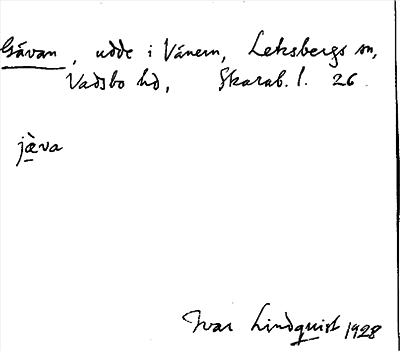 Gävan, udde i Vänern, Leksbergs sn,
Vadsbo hd, Skarab. l. 26.
jæ̀va
Ivar Lindquist 1928